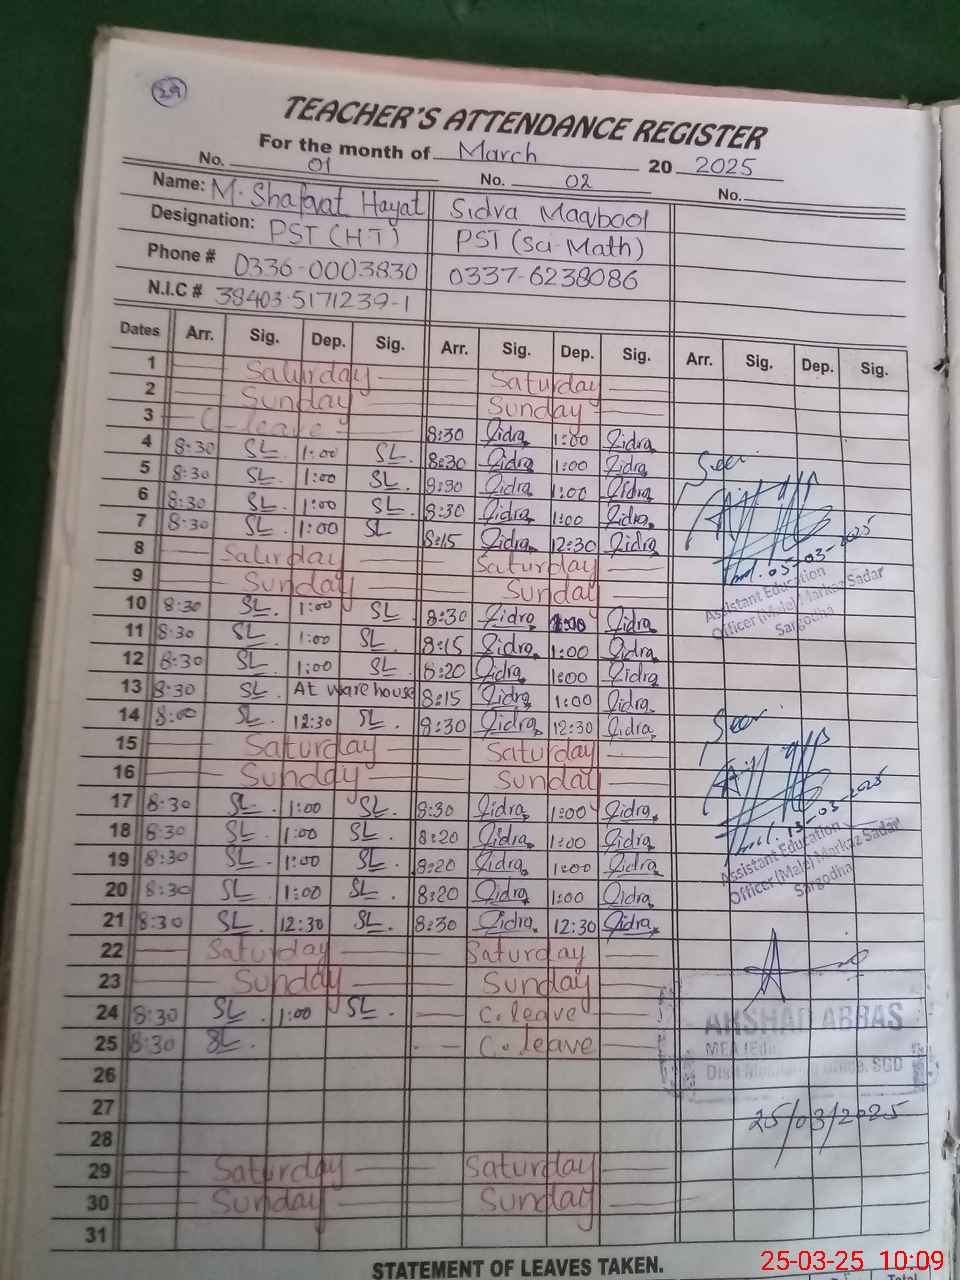 29
TEACHER'S ATTENDANCE REGISTER
For the month of March 2025
No. 01 No. 02 No.
Name: M. Shafaat Hayat Sidra Maqbool
Designation: PST (H.T) PST (Sci-Math)
Phone # 0336-0003830 0337-6238086
N.I.C # 38403-5171239-1
Dates Arr. Sig. Dep. Sig. Arr. Sig. Dep. Sig. Arr. Sig. Dep. Sig.
1 Saturday Saturday
2 Sunday Sunday
3 C-leave 8:30 Sidra 1:00 Sidra
4 8:30 SL. 1:00 SL. 8:30 Sidra 1:00 Sidra
5 8:30 SL. 1:00 SL. 8:30 Sidra 1:00 Sidra
6 8:30 SL. 1:00 SL. 8:30 Sidra 1:00 Sidra
7 8:30 SL. 1:00 SL 8:15 Sidra 12:30 Sidra
8 Saturday Saturday
9 Sunday Sunday
10 8:30 SL. 1:00 SL. 8:30 Sidra 1:00 Sidra
11 8:30 SL. 1:00 SL. 8:15 Sidra 1:00 Sidra
12 8:30 SL. 1:00 SL. 8:20 Sidra 1:00 Sidra
13 8:30 SL. At warehouse 8:15 Sidra 1:00 Sidra
14 8:00 SL. 12:30 SL. 8:30 Sidra 12:30 Sidra
15 Saturday Saturday
16 Sunday Sunday
17 8:30 SL. 1:00 SL. 8:30 Sidra 1:00 Sidra
18 8:30 SL. 1:00 SL. 8:20 Sidra 1:00 Sidra
19 8:30 SL. 1:00 SL. 8:20 Sidra 1:00 Sidra
20 8:30 SL. 1:00 SL. 8:20 Sidra 1:00 Sidra
21 8:30 SL. 12:30 SL. 8:30 Sidra 12:30 Sidra
22 Saturday Saturday
23 Sunday Sunday
24 8:30 SL. 1:00 SL. C. leave
25 8:30 SL. C. leave
26
27
28
29 Saturday Saturday
30 Sunday Sunday
31
Seen
05-03-2025
Assistant Education
Officer (Male) Markaz Sadar
Sargodha
Seen
13-03-2025
Assistant Education
Officer (Male) Markaz Sadar
Sargodha
ARSHAD ABBAS
MEA
SGD
25/03/2025
STATEMENT OF LEAVES TAKEN.
Total
25-03-25 10:09